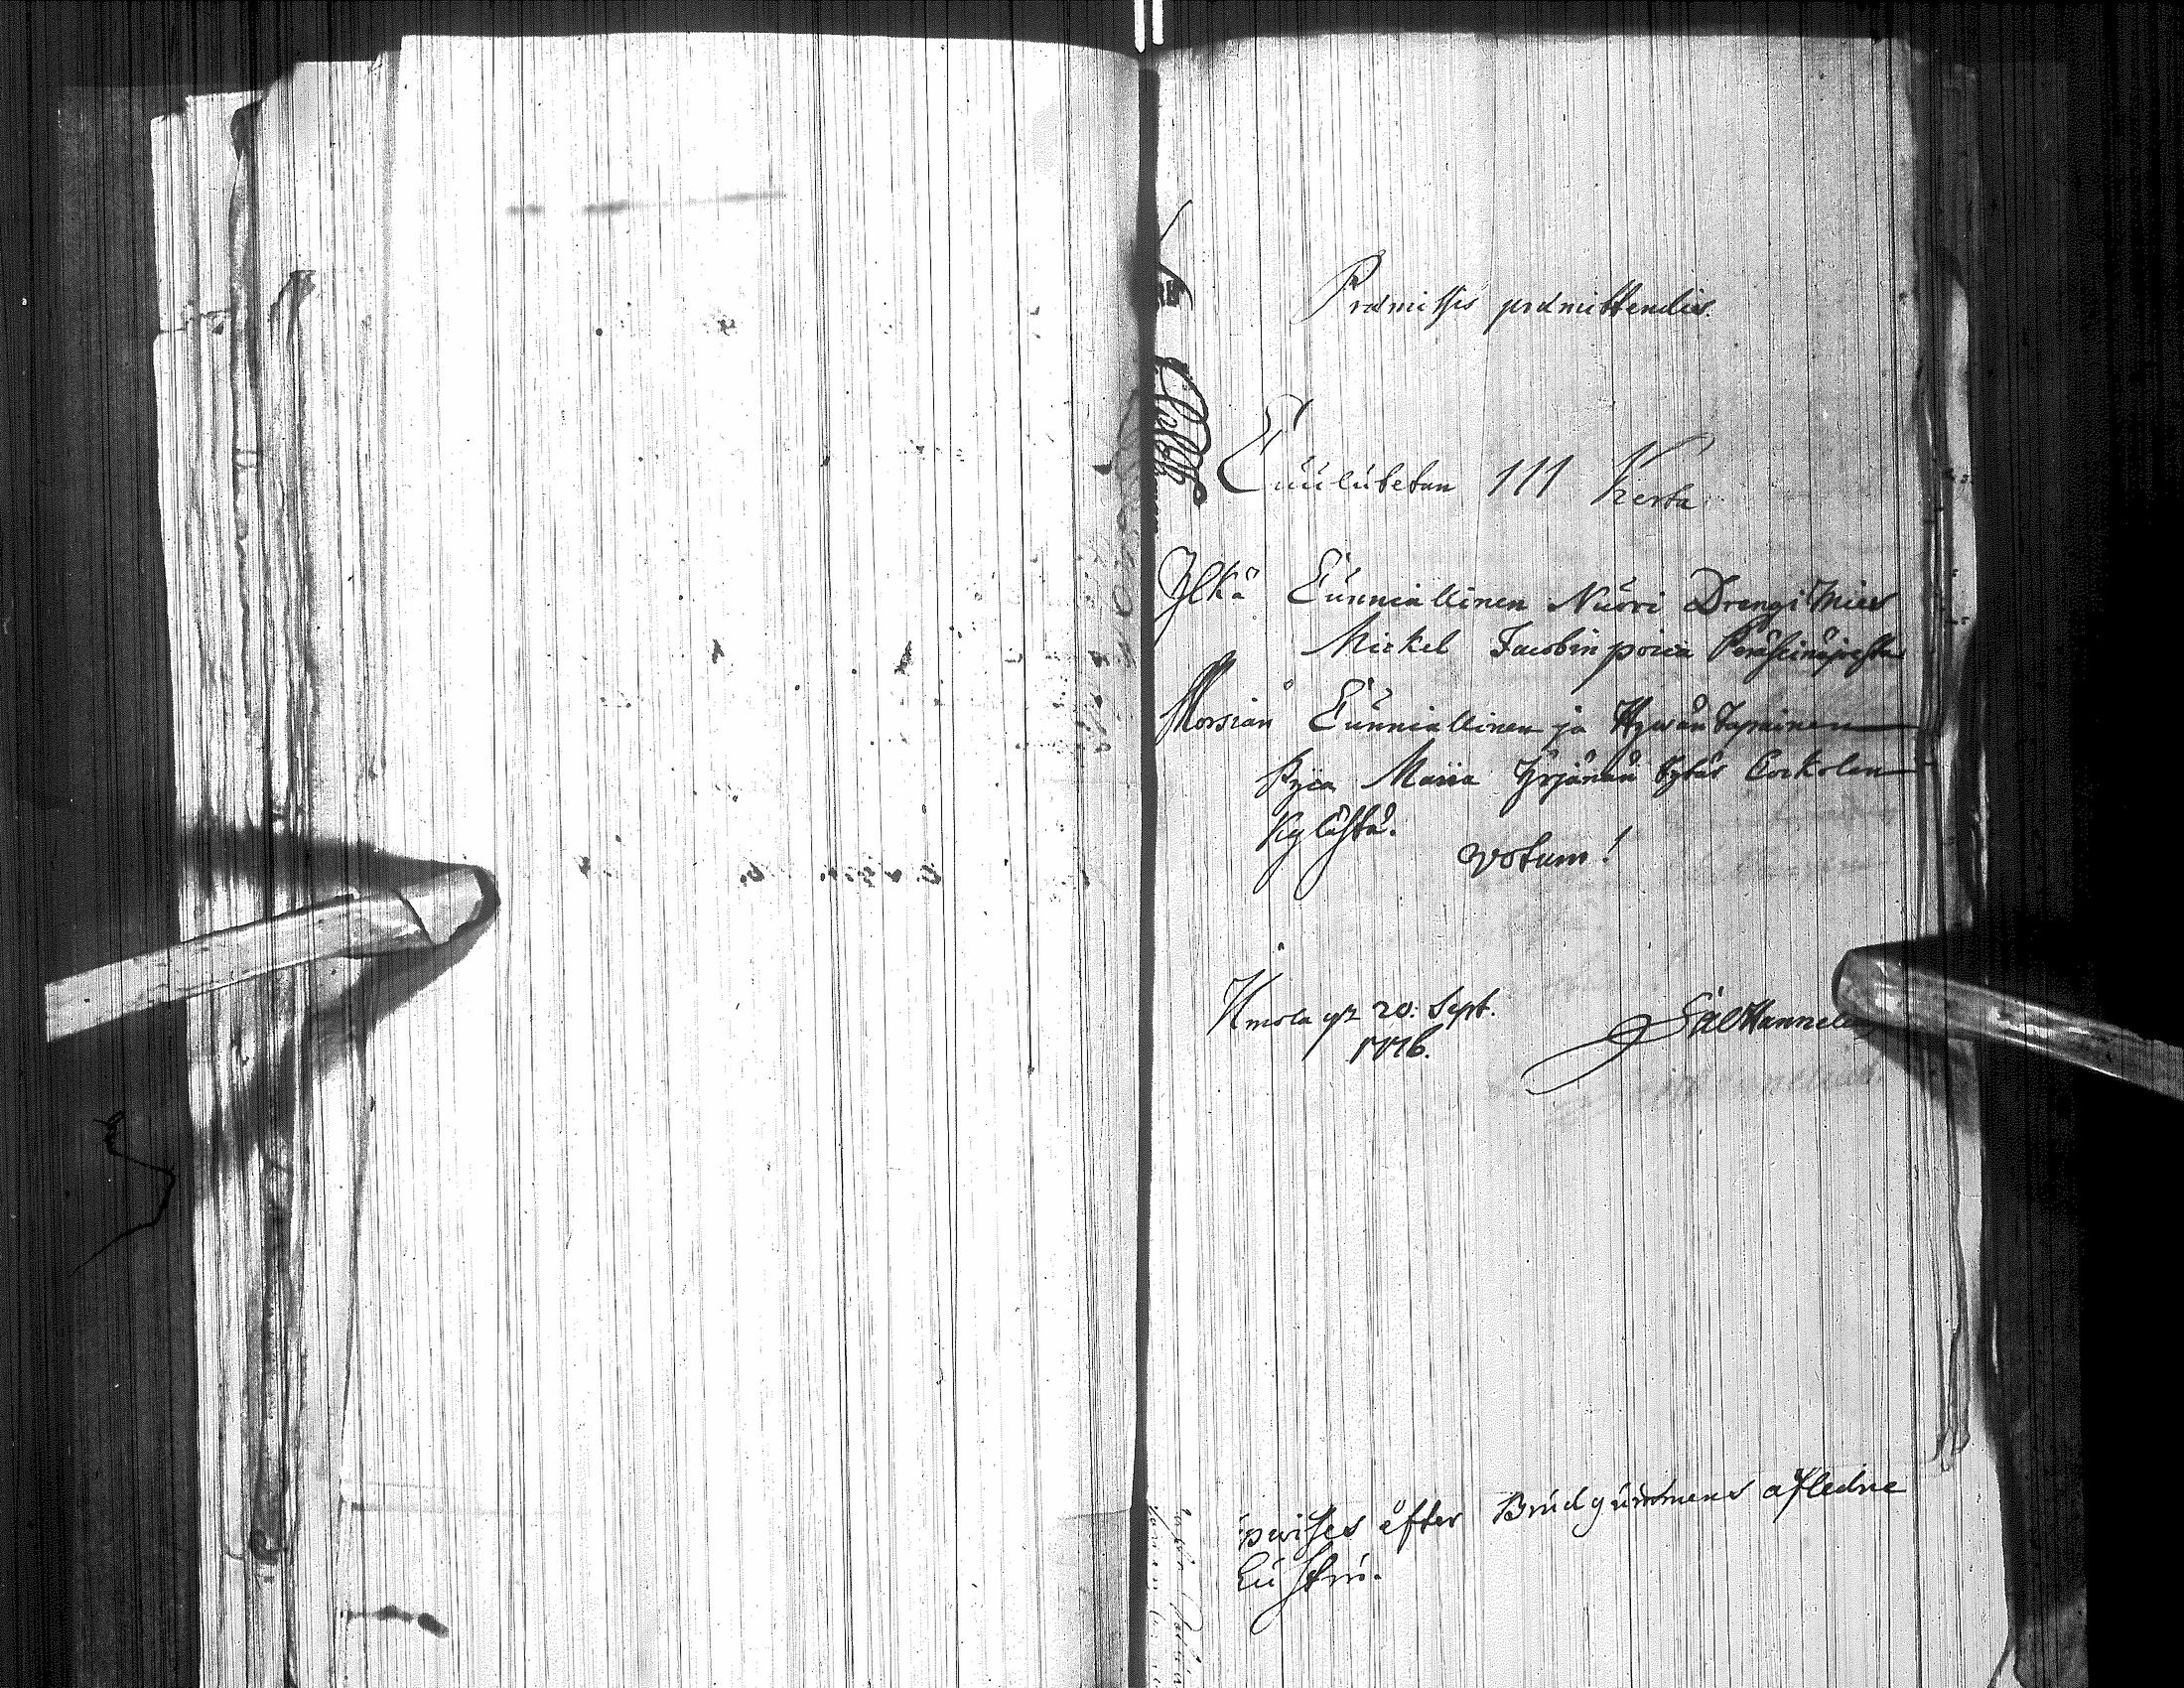 Præmissis præmittendis.
Cuulutetan III Kerta
Ylkä Cunniallinen Nuori Drengi Mies
Mickel Jacobin poica Peräseinäjoesta
Morsian Cunniallinen ja Hywän tapainen
Pyca Maria Yrjänän tytär Cockolan
Kylästä.
Votum!
Ilmola 20: Sept.
1776.
åfter Brudgummens afledne
hustru.